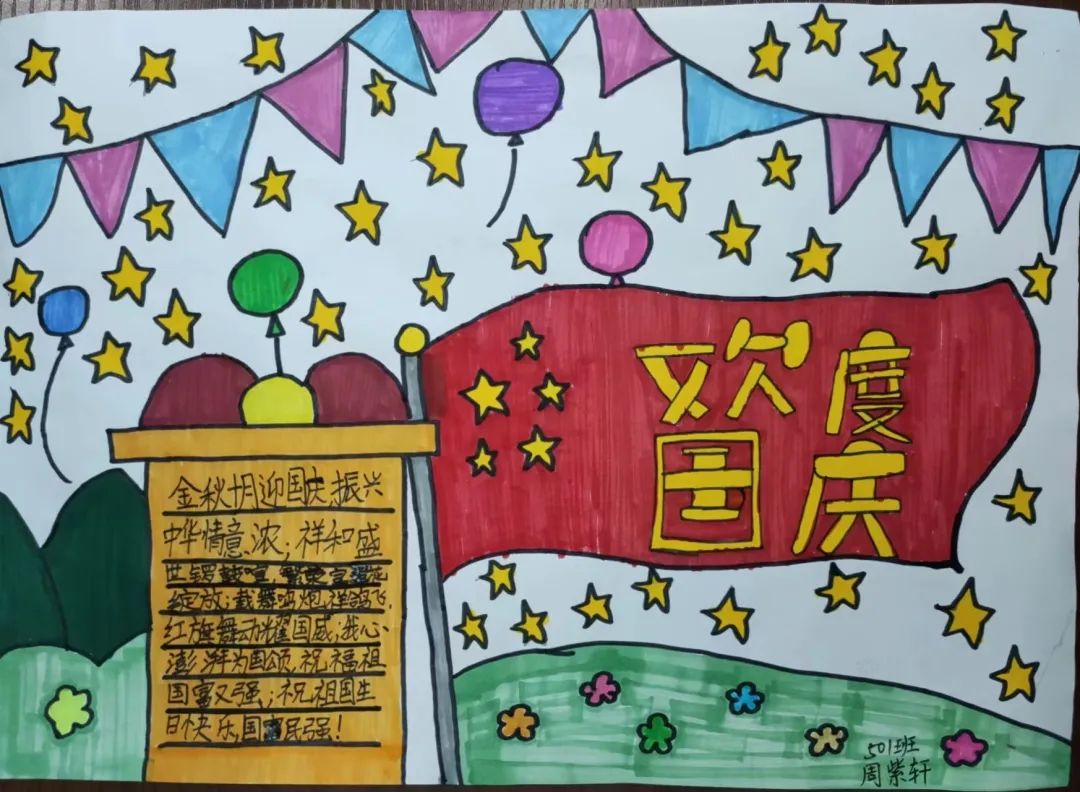 欢度
国庆
金秋十月迎国庆,振兴
中华情意浓;祥和盛
世锣鼓喧,繁荣
绽放;载舞鸣炮,祥鸽飞,
红旗舞动耀国威;我心
澎湃为国颂,祝福祖
国富又强;祝祖国生
日快乐,国富民强!
501班
周紫轩